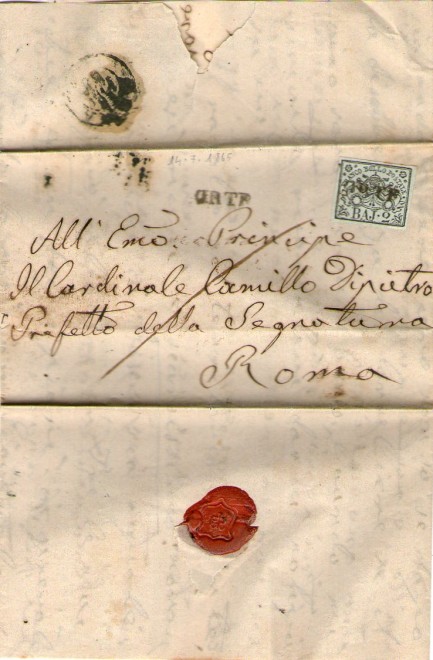 ORTE
BAJ. 2
All' Emo: Principe
Il Cardinale Camillo Dipietro
Prefetto della Segnatura
Roma